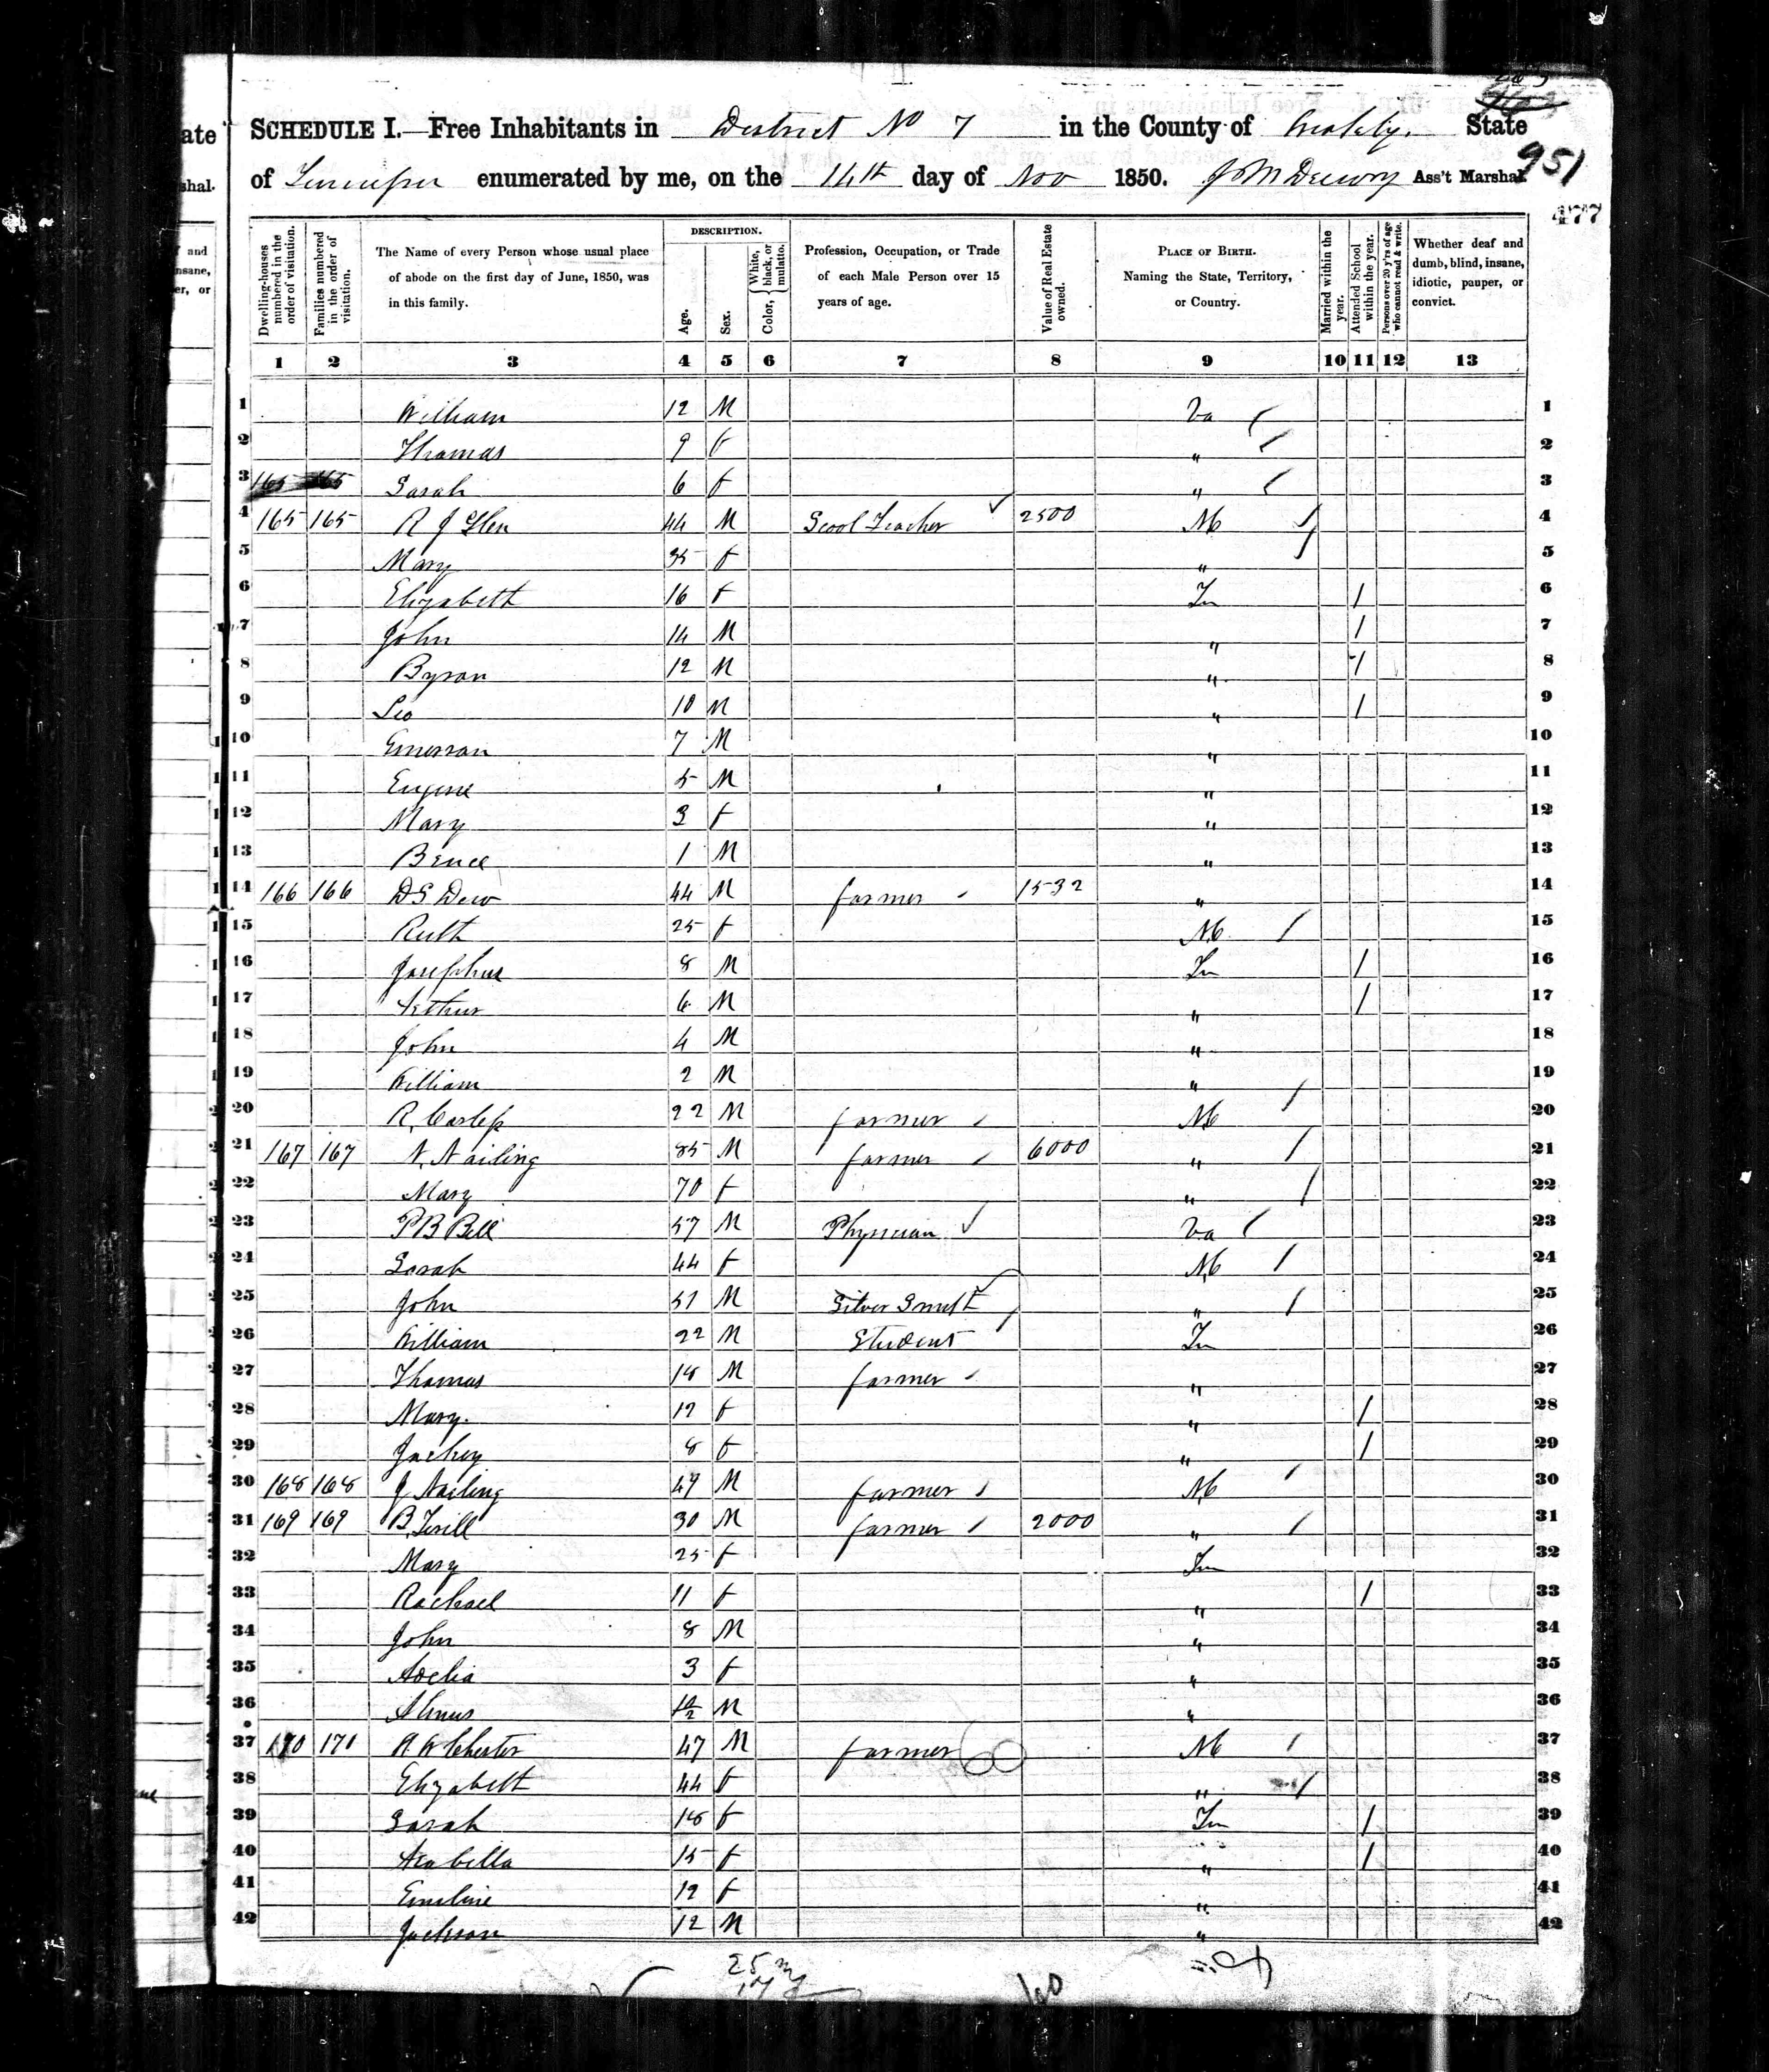 SCHEDULE I.—Free Inhabitants in District No 7 in the County of State
951
of enumerated by me, on the 14th day of Nov 1850. J M Drewry Ass't Marshal.
477
Dwelling-houses numbered in the order of visitation.
Families numbered in the order of visitation.
The Name of every Person whose usual place of abode on the first day of June, 1850, was in this family.
DESCRIPTION.
Age.
Sex.
Color, White, black, or mulatto.
Profession, Occupation, or Trade of each Male Person over 15 years of age.
Value of Real Estate owned.
PLACE OF BIRTH. Naming the State, Territory, or Country.
Married within the year.
Attended School within the year.
Persons over 20 y'rs of age who cannot read & write.
Whether deaf and dumb, blind, insane, idiotic, pauper, or convict.
1 2 3 4 5 6 7 8 9 10 11 12 13
1 William 12 M Va 1
2 Thomas 9 f " 2
3 165 165 Sarah 6 f " 3
4 165 165 R J Glen 44 M Scool Teacher 2500 NC 4
5 Mary 35 f " 5
6 Elizabeth 16 f Tn / 6
7 John 14 M " / 7
8 Byron 12 M " / 8
9 Leo 10 M " / 9
10 Emerson 7 M " 10
11 Eugene 5 M " 11
12 Mary 3 f " 12
13 Bruce 1 M " 13
14 166 166 D S Dew 44 M farmer 1532 " 14
15 Ruth 25 f NC 15
16 Josephus 8 M Tn / 16
17 Arthur 6 M " / 17
18 John 4 M " 18
19 William 2 M " 19
20 R. 22 M farmer NC 20
21 167 167 N. Nailing 85 M farmer 6000 " 21
22 Mary 70 f " 22
23 P B Bell 57 M Physician Va 23
24 Sarah 44 f NC 24
25 John 51 M Silver Smith " 25
26 William 22 M Student Tn 26
27 Thomas 18 M farmer " 27
28 Mary. 12 f " / 28
29 8 f " / 29
30 168 168 J Nailing 49 M farmer NC 30
31 169 169 B. Terill 30 M farmer 2000 " 31
32 Mary 25 f Tn 32
33 Rachael 11 f " / 33
34 John 8 M " 34
35 Adelia 3 f " 35
36 M " 36
37 170 170 Chester 47 M farmer NC 37
38 Elizabeth 44 f " 38
39 Sarah 18 f Tn / 39
40 Arabella 15 f " / 40
41 Emeline 12 f " 41
42 Jackson 12 M " 42
25 m
17 f